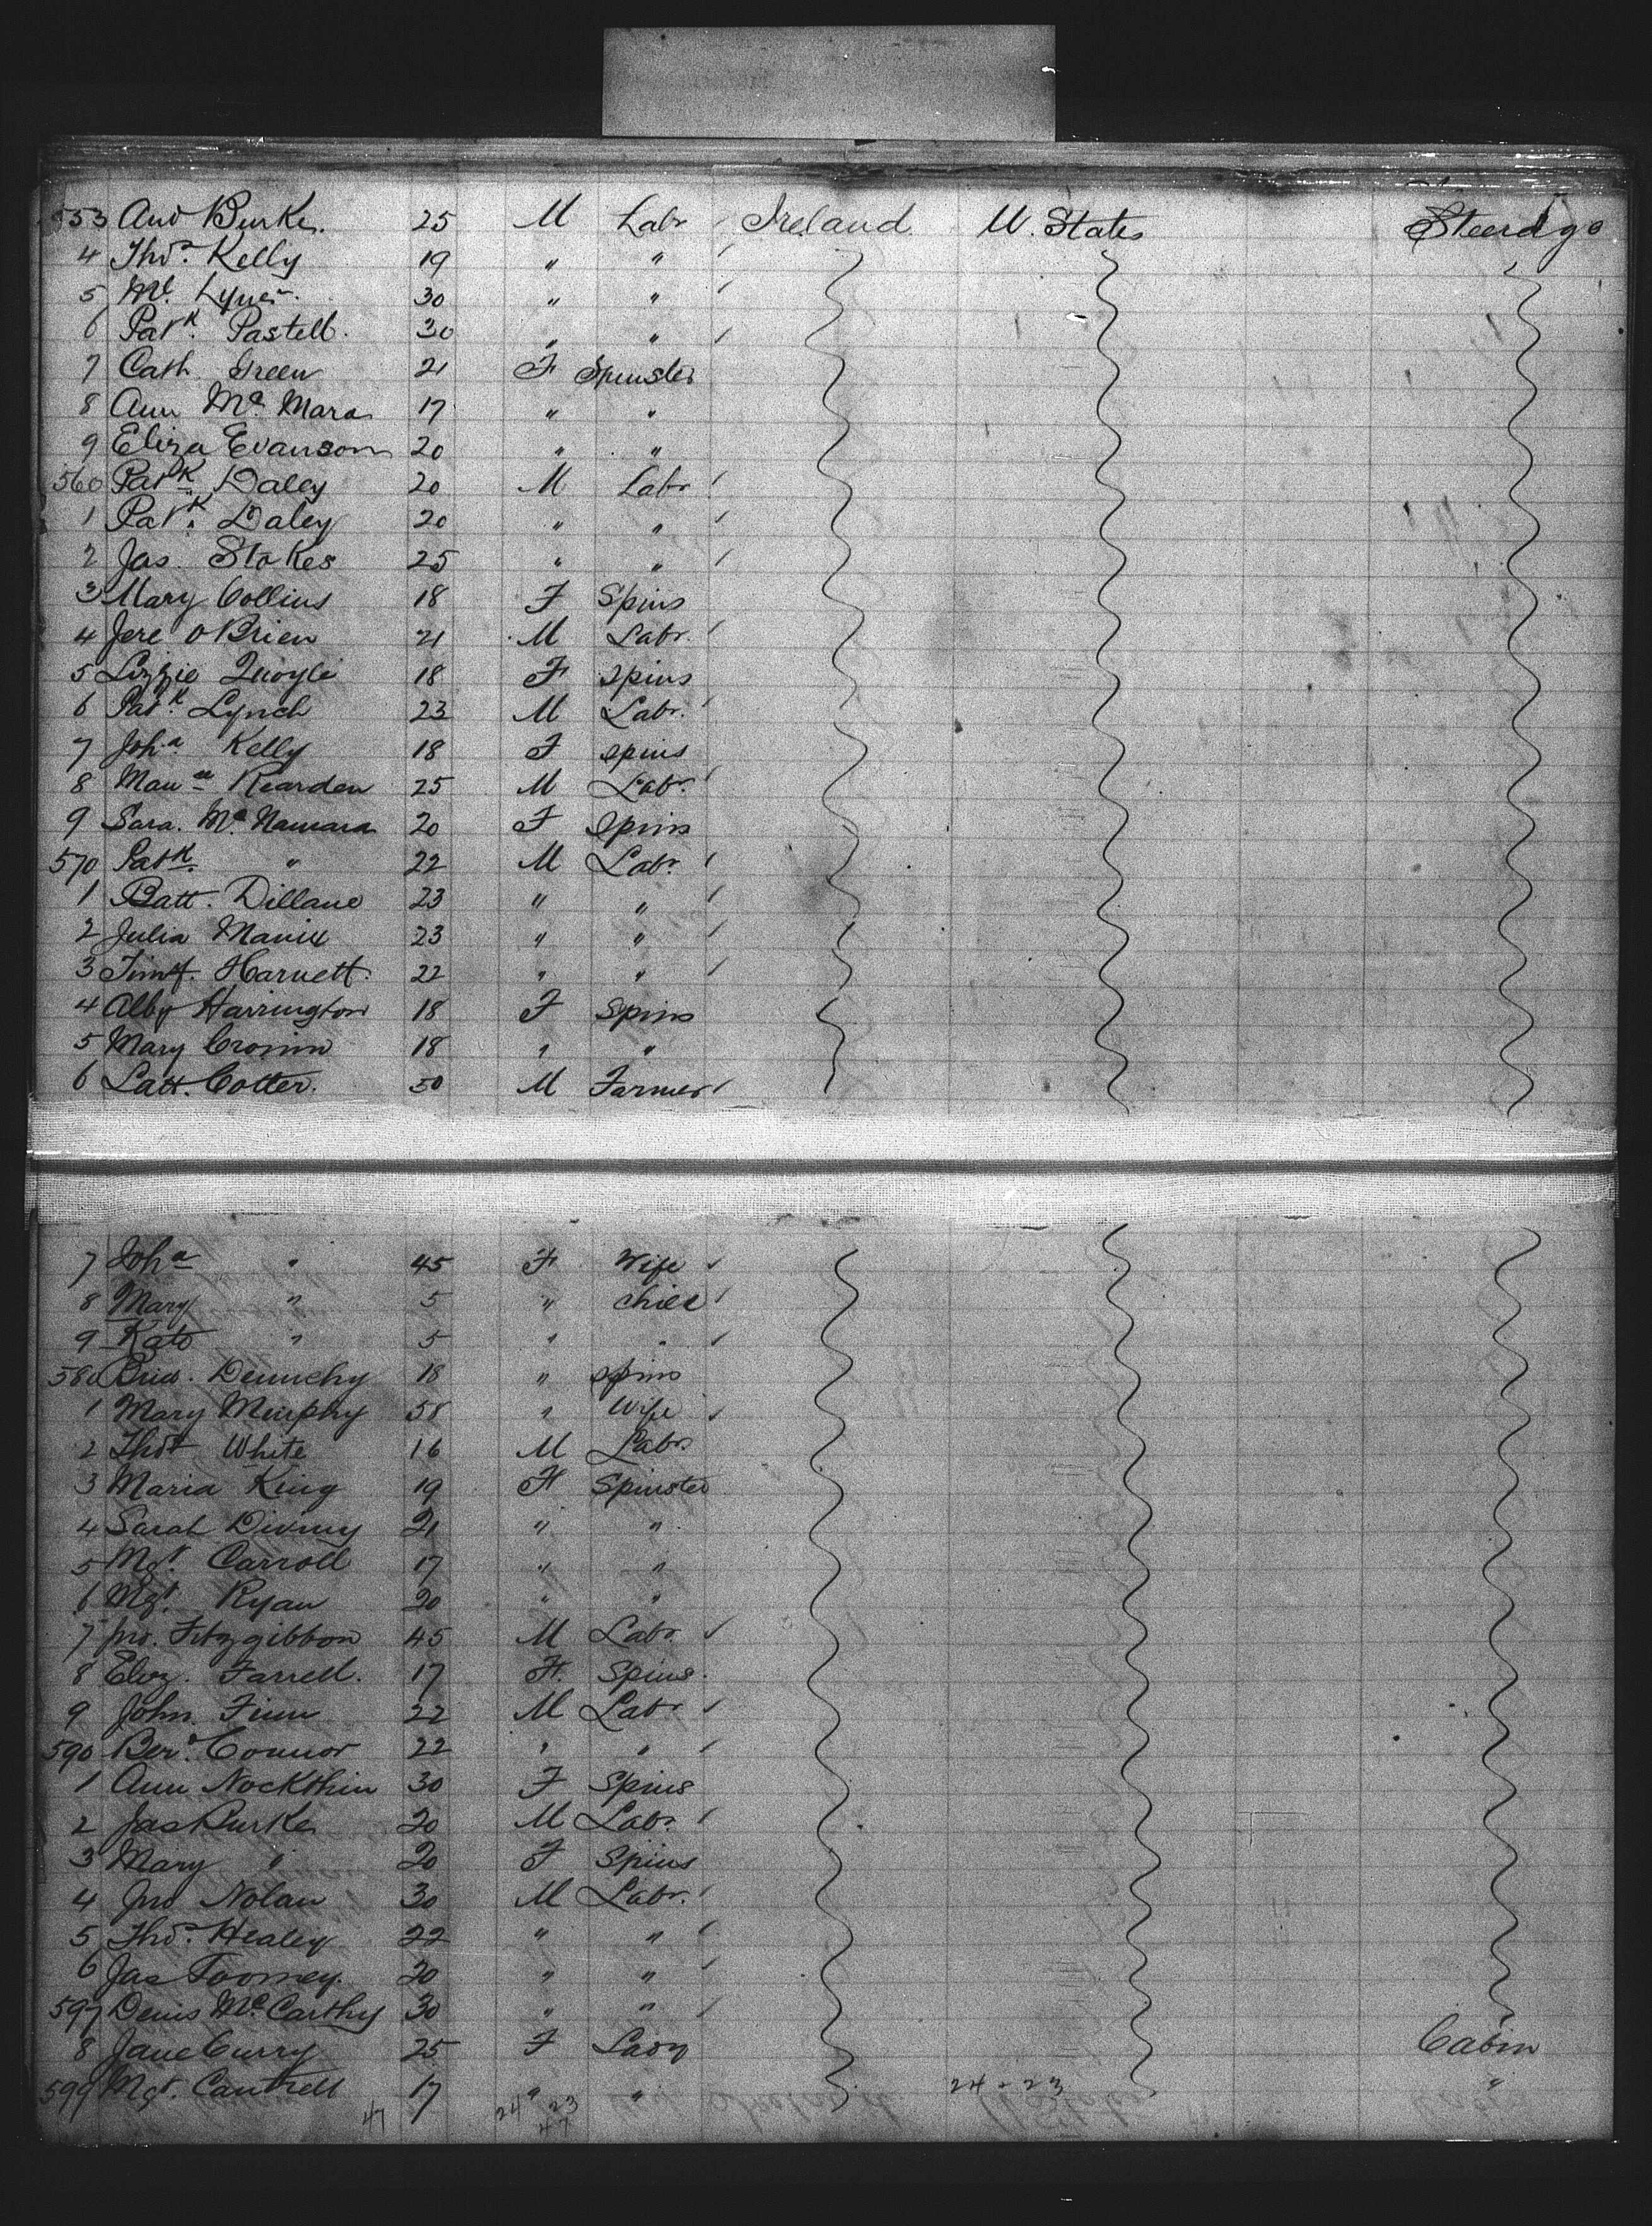 553 And Burke. 25 M Labr Ireland U. States Steerage
4 Thos. Kelly 19 " "
5 Ml. Lynes. 30 " "
6 Patk. Pastell. 30 " "
7 Cath. Green 21 F Spinster
8 Ann Mc Mara 17 " "
9 Eliza Evanson 20 " "
560 Patk Daley 20 M Labr
1 Patk. Daley 20 " "
2 Jas. Stokes 25 " "
3 Mary Collins 18 F Spins
4 Jere O Brien 21 M Labr.
5 Lizzie Quoyle 18 F Spins
6 Patk. Lynch 23 M Labr.
7 Joha Kelly 18 F Spins
8 Mauce Rearden 25 M Labr.
9 Sara. Mc Namara 20 F Spins
570 Patk. " 22 M Labr.
1 Batt. Dillane 23 " "
2 Julia Manix 23 " "
3 Timy. Harnett. 22 " "
4 Alby Harrington 18 F Spins
5 Mary Cronin 18 " "
6 Latt. Cotter. 50 M Farmer
7 Joha " 45 F Wife
8 Mary " 5 " Child
9 Kate " 5 " "
580 Brid. Dennehy 18 " Spins
1 Mary Murphy 58 " Wife
2 Thos White 16 M Labr.
3 Maria King 19 F Spinster
4 Sarah Diviny 21 " "
5 Mgt. Carroll 17 " "
6 Mgt. Ryan 20 " "
7 Jno. Fitzgibbon 45 M Labr.
8 Eliz. Farrell. 17 F. Spins.
9 John Finn 22 M Labr
590 Berd. Connor 22 " "
1 Ann Nockthin 30 F Spins
2 Jas Burke 20 M Labr.
3 Mary " 20 F Spins
4 Jno Nolan 30 M Labr.
5 Thos. Healey 22 " "
6 Jas Toomey. 20 " "
597 Denis Mc Carthy 30 " "
8 Jane Curry 25 F Lady Cabin
599 Mgt. Cantrell 17 " " 24-23 "
47 24 23
47